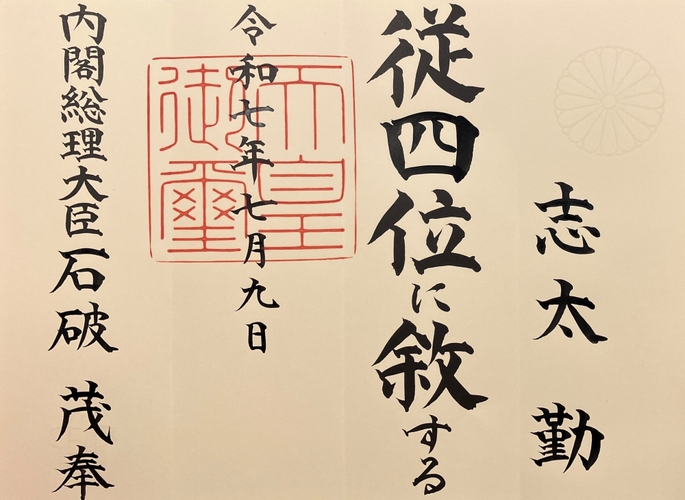 志太 勤
従四位に敘する
令和七年七月九日
天皇御璽
内閣総理大臣石破 茂奉